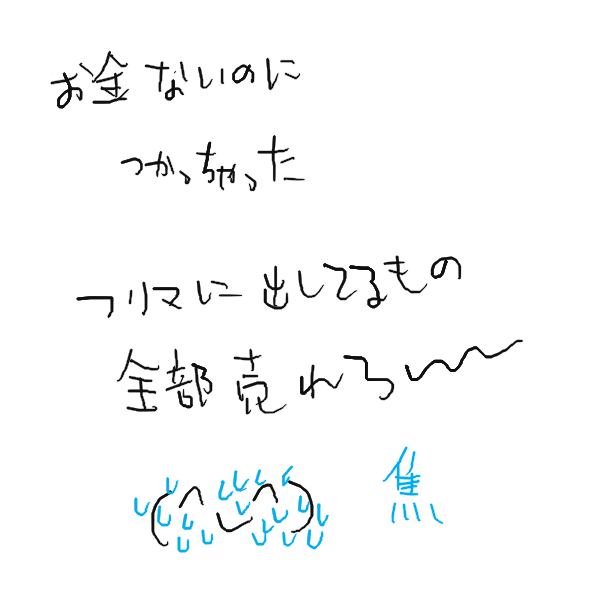 お金ないのに
つかっちゃった
フリマに出してるもの
全部売れろ〜〜
焦